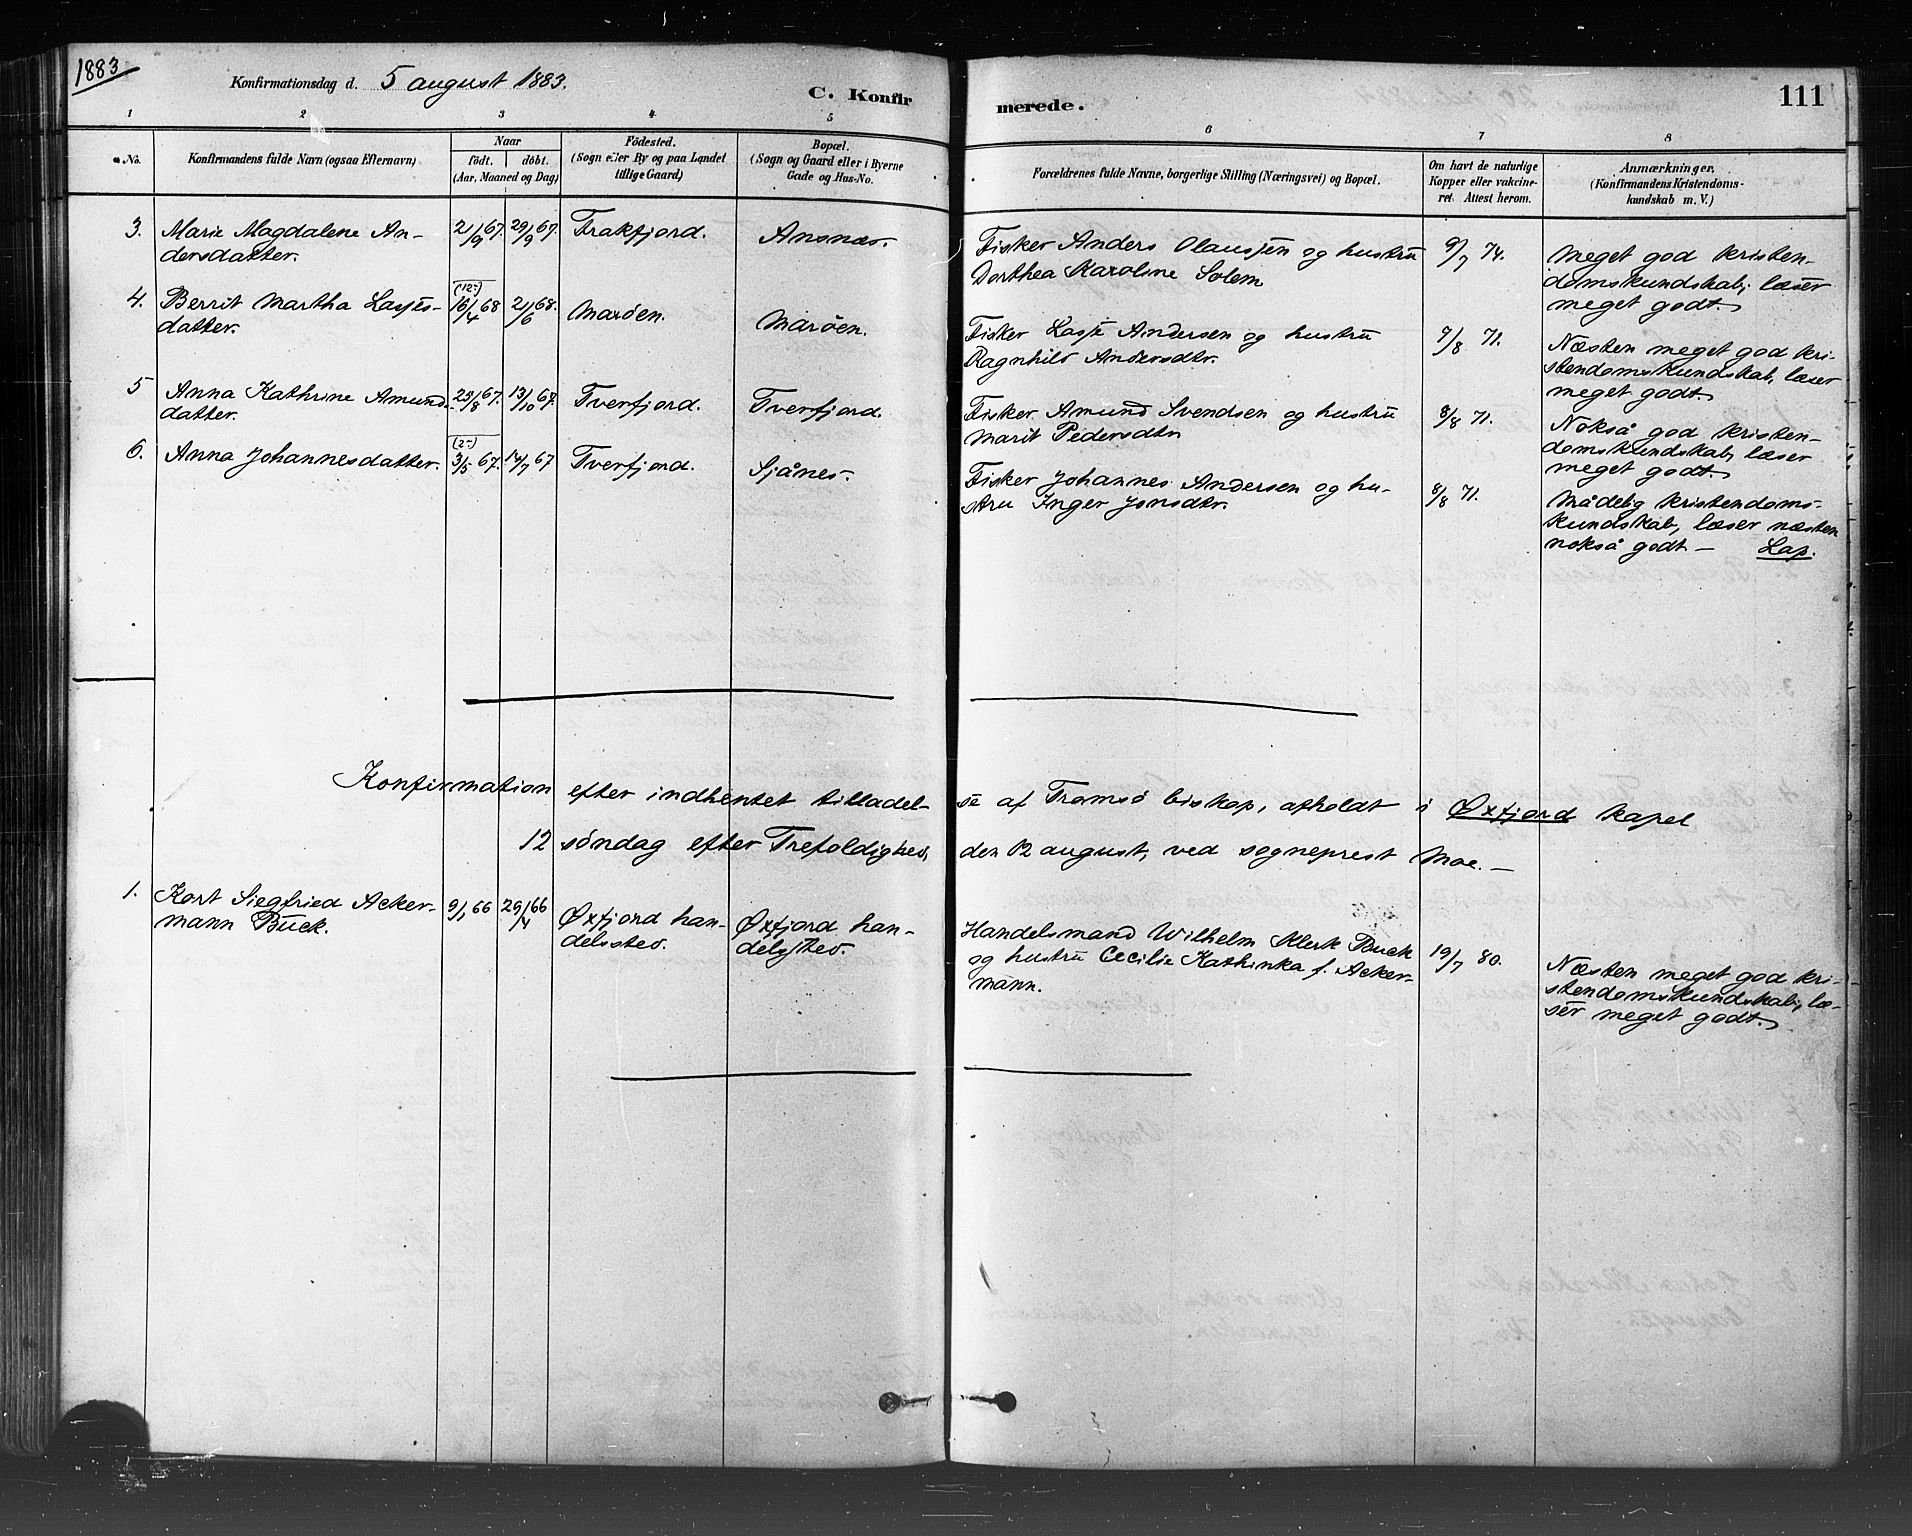 1883
Konfirmationsdag d. 5 august 1883.
C. Konfirmerede.
111
1 2 3 4 5 6 7 8
No.
Konfirmandens fulde Navn (ogsaa Efternavn)
Naar
født. døbt.
(Aar, Maaned og Dag)
Födested.
(Sogn eller By og paa Landet
tillige Gaard)
Bopæl.
(Sogn og Gaard eller i Byerne
Gade og Hus-No.
Forældrenes fulde Navne, borgerlige Stilling (Næringsvei) og Bopæl.
Om havt de naturlige
Kopper eller vakcine-
ret. Attest herom.
Anmærkninger.
(Konfirmandens Kristendoms-
kundskab m. V.)
3. Marie Magdalene An-
dersdatter.
21/9 67. 29/9 67. Frakfjord. Ansnæs.
Fisker Anders Olaussen og hustru
Dorthea Karoline Solem
9/7 74.
Meget god kristen-
domskundskab, læser
meget godt.
4. Berrit Martha Lasses-
datter.
(12-)
16/4 68 21/6 68. Marøen. Marøen.
Fisker Lasse Andersen og hustru
Ragnhild Andersdtr.
7/8 71.
Næsten meget god kri-
stendomskundskab, læser
meget godt
5 Anna Kathrine Amund-
datter.
25/8 67. 13/10 67. Tverfjord. Tverfjord.
Fisker Amund Svendsen og hustru
Marit Pedersdtr
8/8 71.
Nokså god kristen-
domskundskab, læser
meget godt
6. Anna Johannesdatter.
(2-)
3/5 67. 14/7 67 Tverfjord. Sjånes.
Fisker Johannes Andersen og hu-
stru Inger Jonsdtr.
8/8 71.
Mådelig kristendoms-
kundskab, læser næsten
nokså godt — Lap.
Konfirmation efter indhentet tilladel-se af Tromsø biskop, afholdt i Øxfjord kapel
12 søndag efter Trefoldighed, den 12 august, ved sogneprest Moe. —
1. Kort Siegfried Acker-
mann Buck.
9/1 66 29/4 66
Øxfjord han-
delssted.
Øxfjord han-
delssted.
Handelsmand Wilhelm Klerk Buck
og hustru Cecilie Kathinka f. Acker-
mann.
19/7 80.
Næsten meget god kri-
stendomskundskab, læ-
ser meget godt.